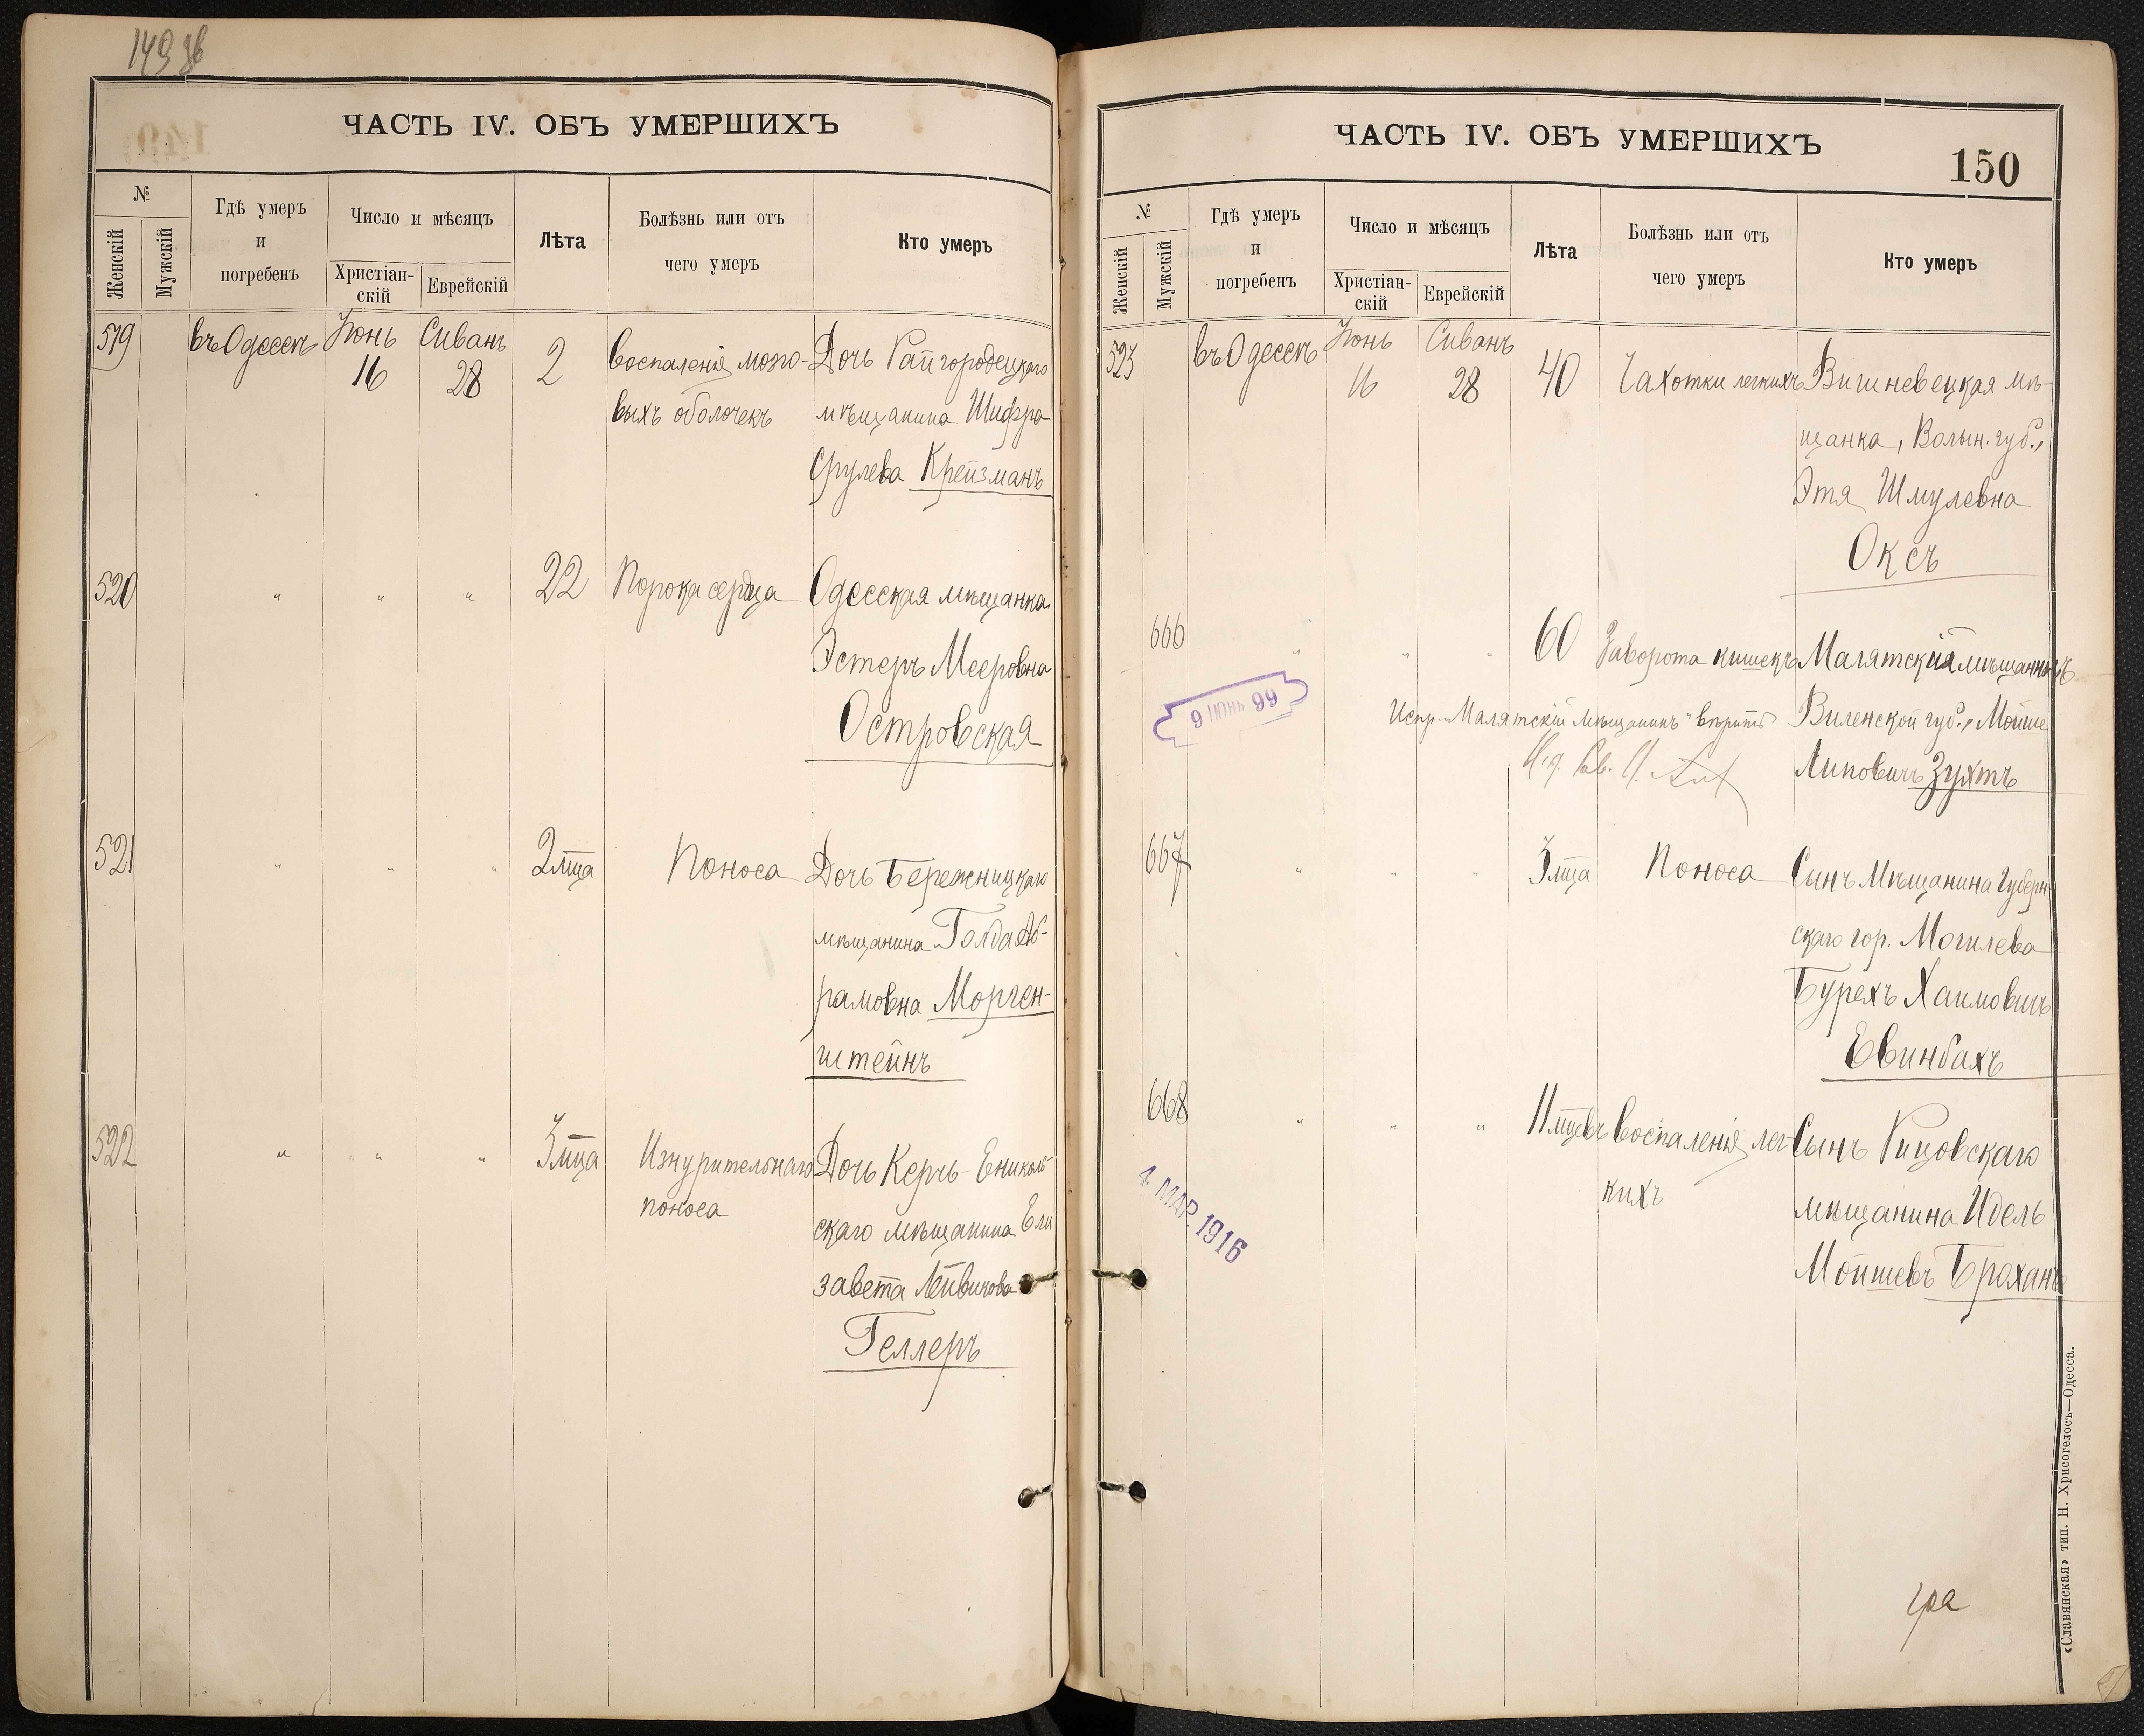 149 зв
ЧАСТЬ IV. ОБЪ УМЕРШИХЪ
№
Женскій
Мужскій
Гдѣ умеръ
и
погребенъ
Число и мѣсяцъ
Христіан-
скій
Еврейскій
Лѣта
Болѣзнь или отъ
чего умеръ
Кто умеръ
519
въ Одессѣ
Іюнь
16
Сиванъ
28
2
Воспаленія мозго-
выхъ оболочекъ
Дочь Райгородецкаго
мѣщанина Шифра
Срулева Крейзманъ
520
"
"
"
22
Порока сердца
Одесская мѣщанка
Эстеръ Мееровна
Островская
521
"
"
"
2 мца
Поноса
Дочь Бережницкаго
мѣщанина Голда Аб-
рамовнаМорген-
штейнъ
522
"
"
"
3 мца
Изнурительнаго
поноса
Дочь Керчь-Ениколь-
скаго мѣщанина Ели
завета Лейвикова
Геллеръ
ЧАСТЬ IV. ОБЪ УМЕРШИХЪ
150
№
Женскій
Мужскій
Гдѣ умеръ
и
погребенъ
Число и мѣсяцъ
Христіан-
скій
Еврейскій
Лѣта
Болѣзнь или отъ
чего умеръ
Кто умеръ
523
въ Одессѣ
Іюнь
16
Сиванъ
28
40
Чахотки легкихъ
Вишневецкая мѣ-
щанка, Волын. губ.,
Этя Шмулевна
Оксъ
666
"
"
"
60
Заворота кишекъ
Малятскій мѣщанинъ
Виленской губ., Мойше
Липовичъ Зухтъ
Испр. "Малятскій мѣщанинъ" вѣрить
И. д. Рав.
9 ИЮН 99
667
"
"
"
3 мца
Поноса
Сынъ Мѣщанина Губерн-
скаго гор. Могилева
Бурехъ Хаимовичъ
Евинбахъ
668
"
"
"
11 мцевъ
Воспаленія лег-
кихъ
Сынъ Рицовскаго
мѣщанина Идель
Мойшевъ Броханъ
4 МАР. 1916
«Славянская» тип. Н. Хрисогелосъ—Одесса.